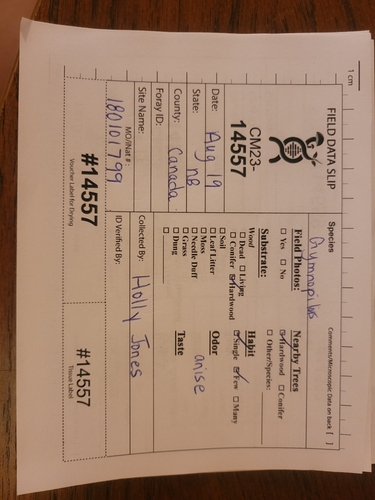 1 cm
FIELD DATA SLIP
CM23-
14557
Date: Aug 19
State: NB
County: Canada
Foray ID:
Site Name:
MO/iNat #:
180101799
Species Gymnopilus
Comments/Microscopic Data on back [ ]
Field Photos:
☐ Yes ☐ No
Nearby Trees
☑ Hardwood ☐ Conifer
☐ Other/Species:
Substrate:
Wood
☐ Dead ☐ Living
☐ Conifer ☑ Hardwood
☐ Soil
☐ Leaf Litter
☐ Moss
☐ Needle Duff
☐ Grass
☐ Dung
Habit
☑ Single ☑ Few ☐ Many
Odor
anise
Taste
Collected By: Holly Jones
ID Verified By:
#14557
Voucher Label for Drying
#14557
Tissue Label